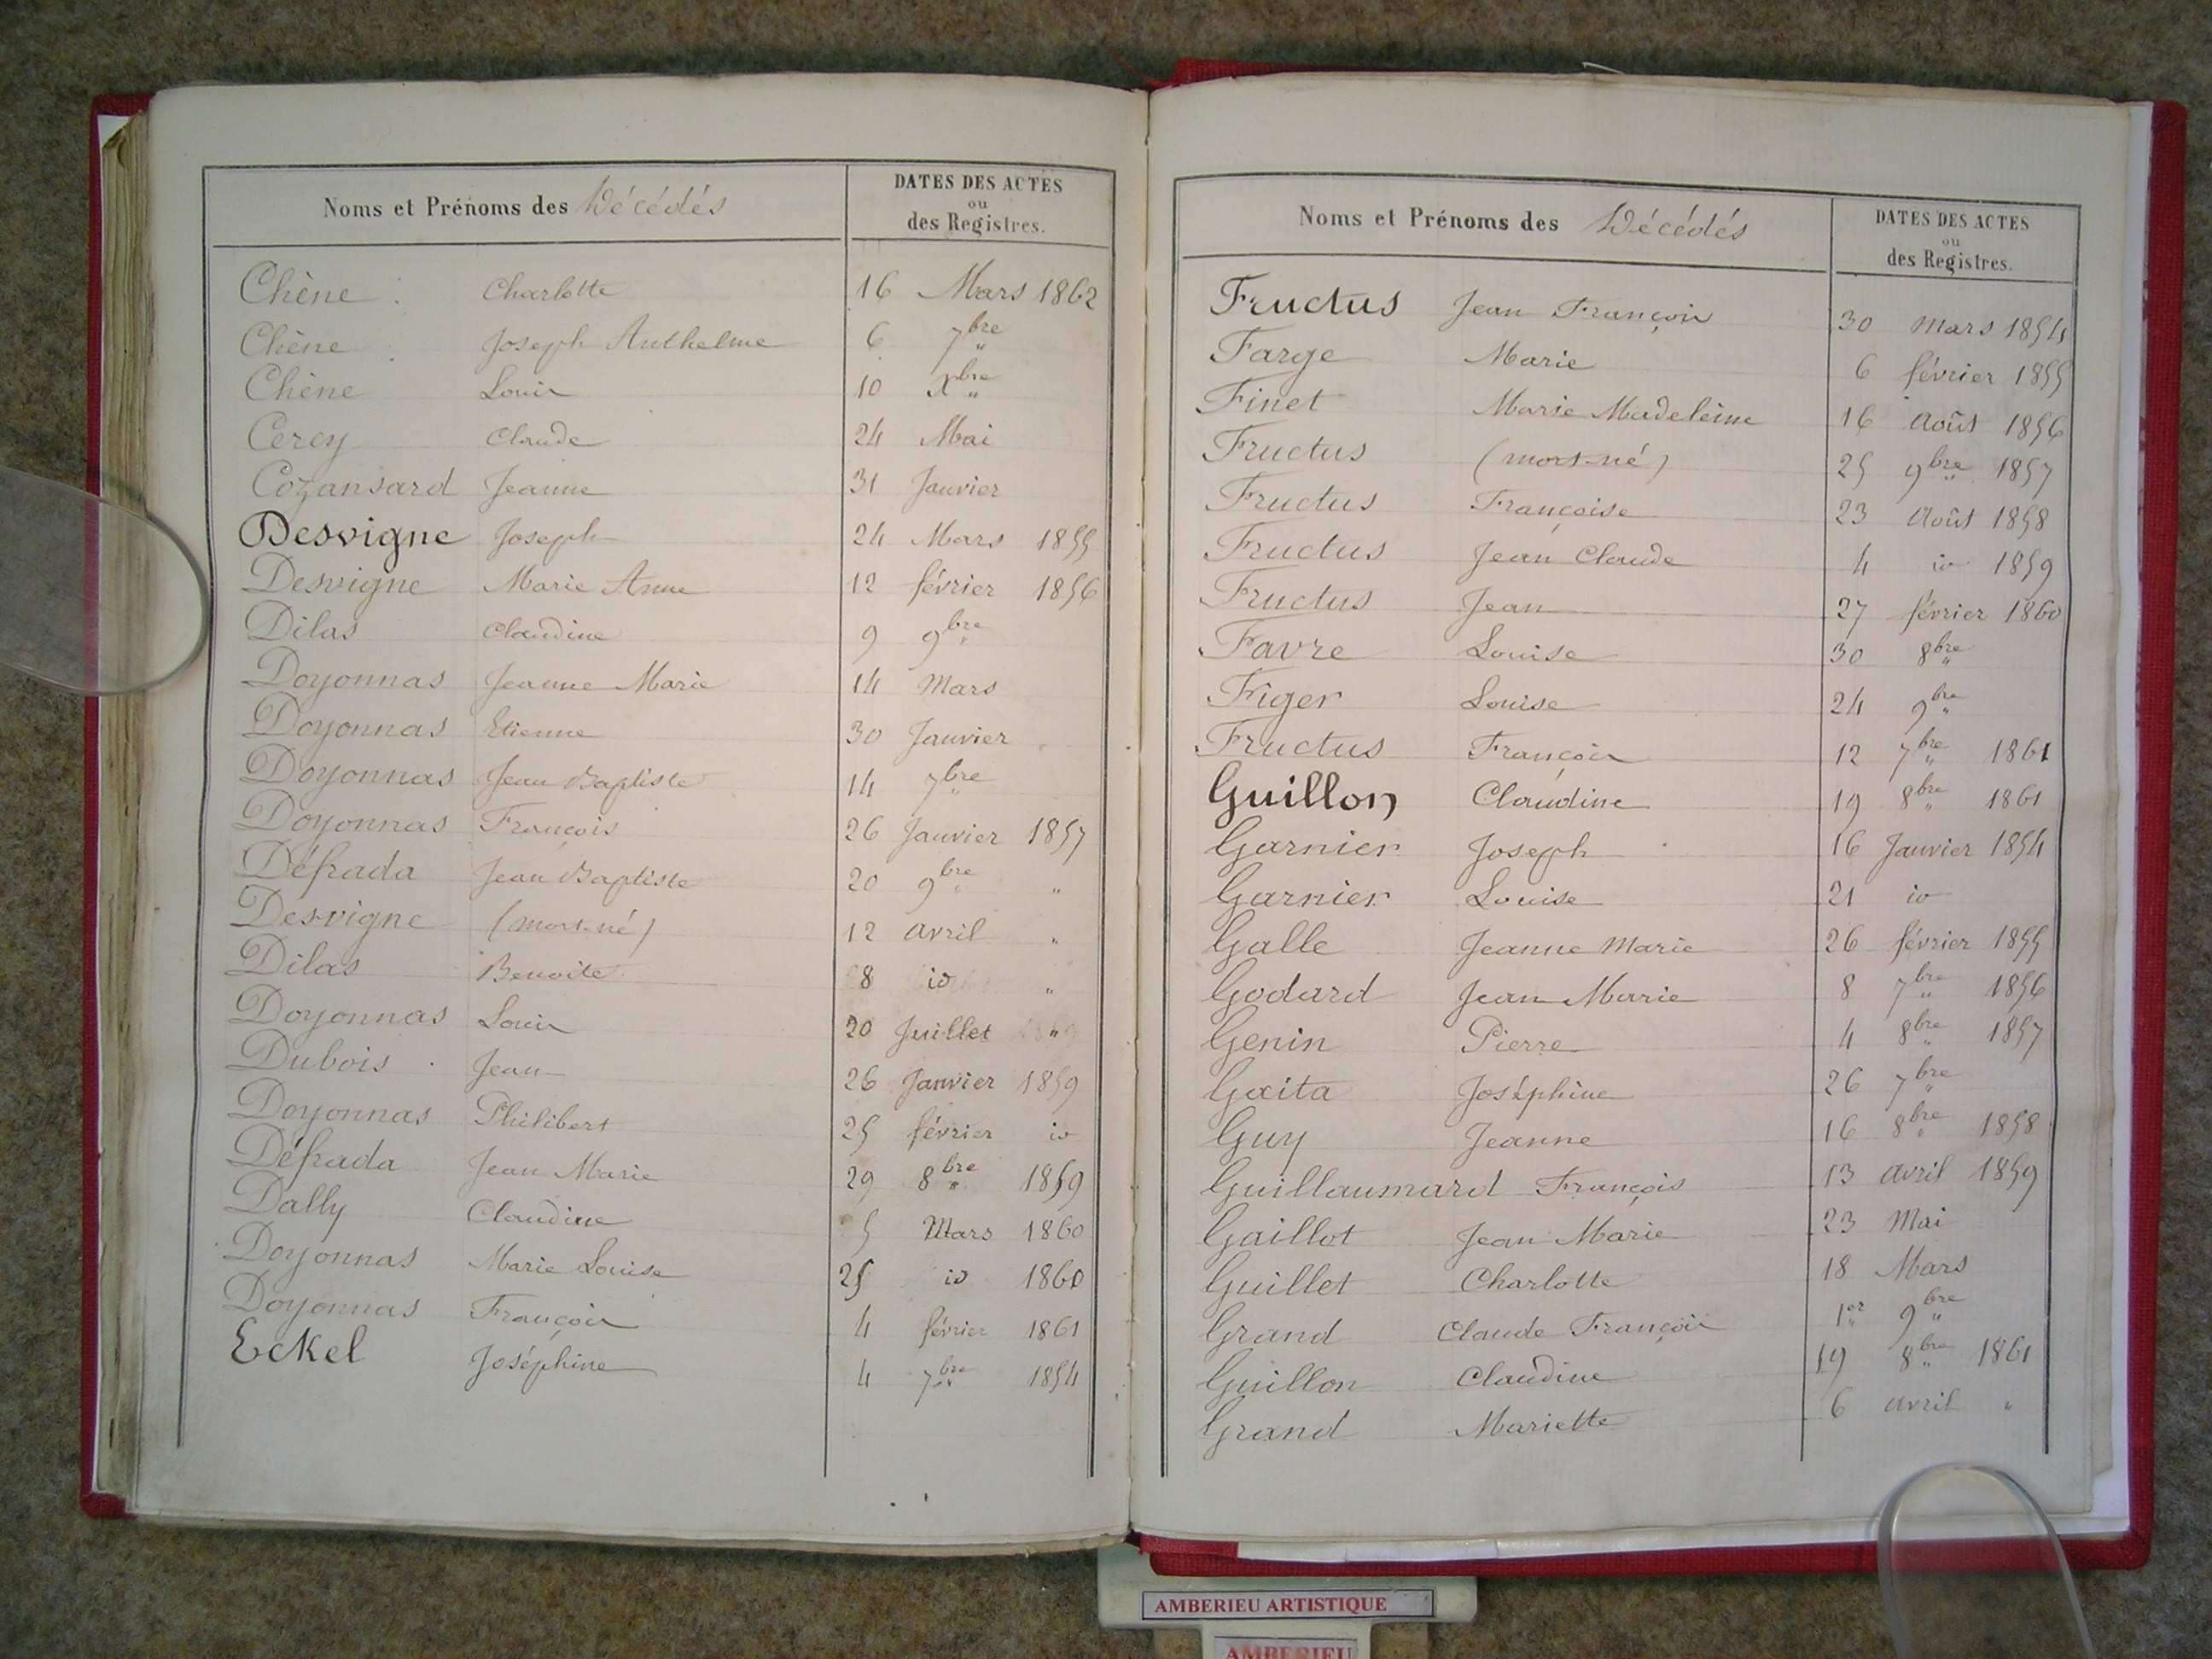 Noms et Prénoms des Décédés
DATES DES ACTES
ou
des Registres.
Chêne Charlotte 16 Mars 1862
Chêne Joseph Anthelme 6 7bre "
Chêne Louis 10 Xbre "
Cercy Claude 24 Mai
Cozansard Jeanne 31 Janvier
Desvigne Joseph 24 Mars 1855
Desvigne Marie Anne 12 février 1856
Dilas Claudine 9 9bre "
Doyonnas Jeanne Marie 14 Mars
Doyonnas Etienne 30 Janvier
Doyonnas Jean Baptiste 14 7bre "
Doyonnas François 26 Janvier 1857
Défrada Jean Baptiste 20 9bre " "
Desvigne (mort-né) 12 avril "
Dilas Benoite 8 id "
Doyonnas Louis 20 Juillet "
Dubois Jean 26 Janvier 1859
Doyonnas Philibert 25 février id
Défrada Jean Marie 29 8bre " 1859
Dally Claudine 5 Mars 1860
Doyonnas Marie Louise 25 id 1860
Doyonnas François 4 février 1861
Eckel Joséphine 4 7bre " 1854
Noms et Prénoms des Décédés
DATES DES ACTES
ou
des Registres.
Fructus Jean François 30 mars 1854
Farge Marie 6 février 1855
Finet Marie Madeleine 16 Août 1856
Fructus (mort-né) 25 9bre " 1857
Fructus Françoise 23 Août 1858
Fructus Jean Claude 4 id 1859
Fructus Jean 27 février 1860
Favre Louise 30 8bre "
Figer Louise 24 9bre "
Fructus François 12 7bre " 1861
Guillon Claudine 19 8bre " 1861
Garnier Joseph 16 Janvier 1854
Garnier Louise 21 id
Galle Jeanne Marie 26 février 1855
Godard Jean Marie 8 7bre " 1856
Genin Pierre 4 8bre " 1857
Gaita Joséphine 26 7bre "
Guy Jeanne 16 8bre " 1858
Guillaumard François 13 avril 1859
Gaillot Jean Marie 23 Mai
Guillet Charlotte 18 Mars
Grand Claude François 1er 9bre "
Guillon Claudine 19 8bre " 1861
Grand Mariette 6 avril "
AMBERIEU ARTISTIQUE
AMBERIEU